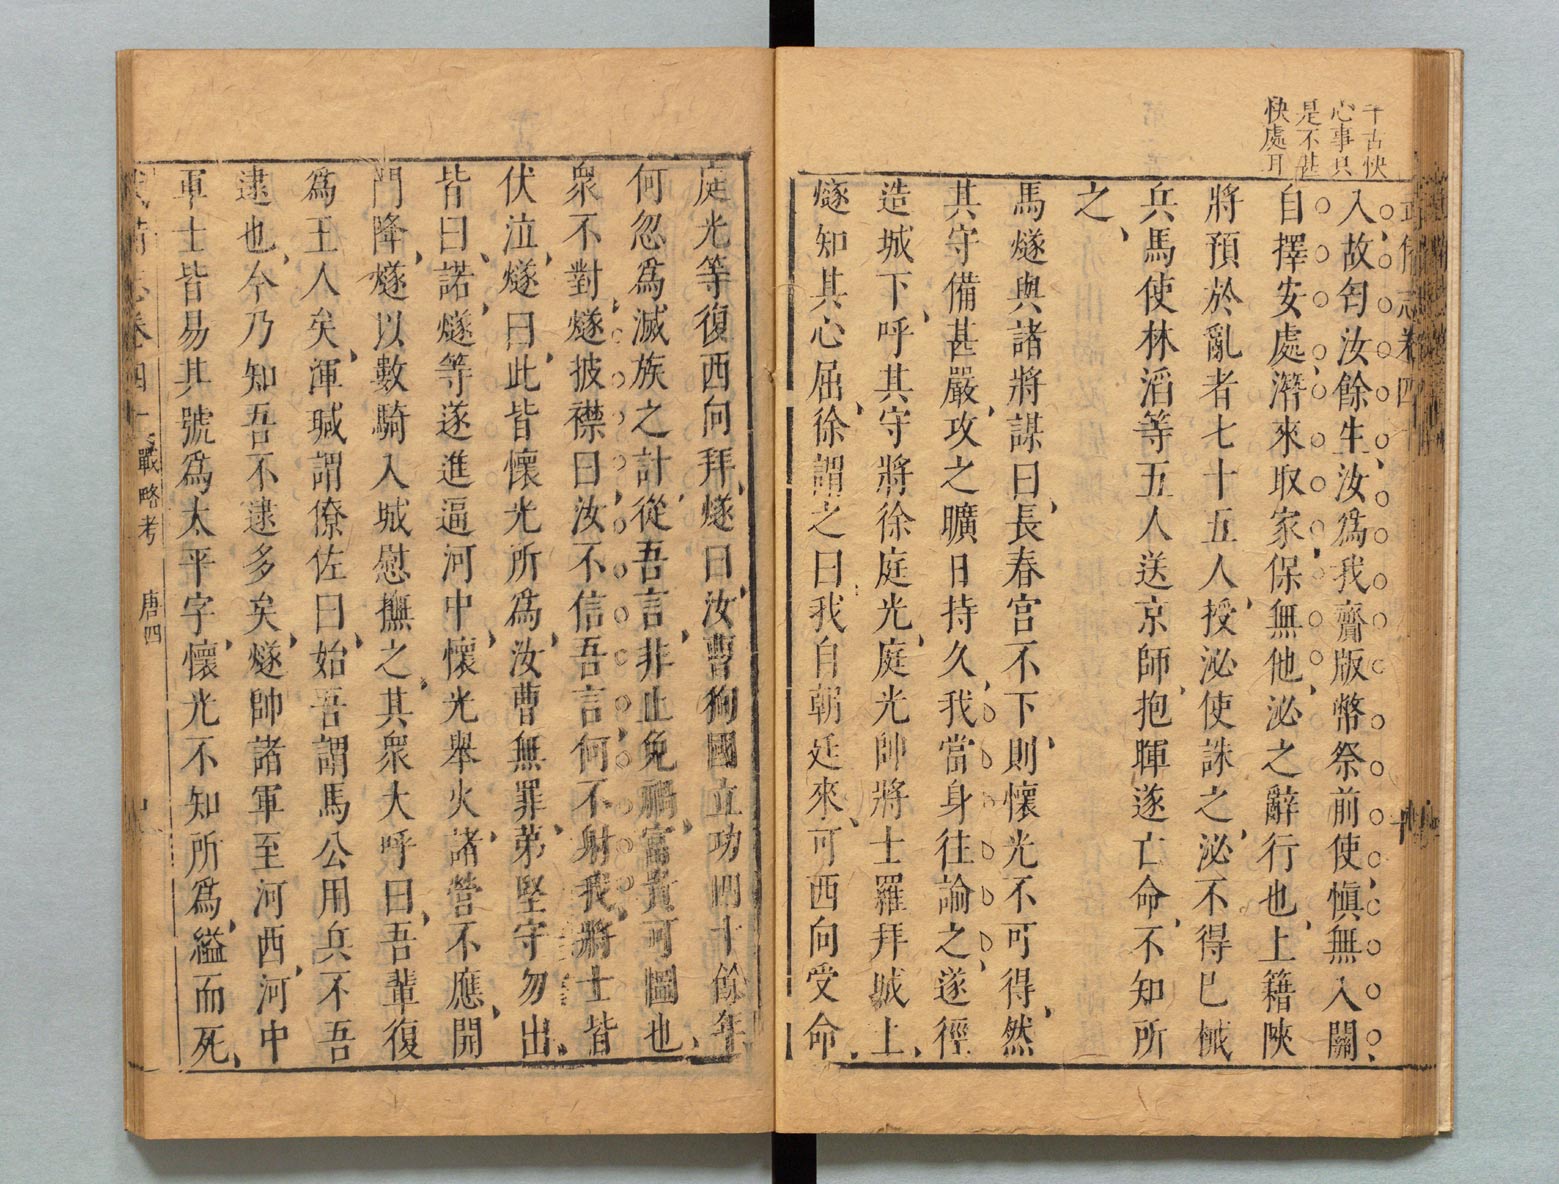 千古快
心事只
是不甚
快處耳
武備志卷四十
入故匄汝餘生汝爲我齎版幣祭前使愼無入關
自擇安處潛來取家保無他泌之辭行也上籍陝
將預於亂者七十五人授泌使誅之泌不得已械
兵馬使林滔等五人送京師抱暉遂亡命不知所
之
馬燧與諸將謀曰長春宮不下則懷光不可得然
其守備甚嚴攻之曠日持久我當身往諭之遂徑
造城下呼其守將徐庭光庭光帥將士羅拜城上
燧知其心屈徐謂之曰我自朝廷來可西向受命
庭光等復西向拜燧曰汝曹狥國立功四十餘年
何忽爲滅族之計從吾言非止免禍富貴可圖也
衆不對燧披襟曰汝不信吾言何不射我將士皆
伏泣燧曰此皆懷光所爲汝曹無罪弟堅守勿出
皆曰諾燧等遂進逼河中懷光舉火諸營不應開
門降燧以數騎入城慰撫之其衆大呼曰吾輩復
爲王人矣渾瑊謂僚佐曰始吾謂馬公用兵不吾
逮也今乃知吾不逮多矣燧帥諸軍至河西河中
軍士皆易其號爲太平字懷光不知所爲縊而死
武備志卷四十 戰略考 唐四